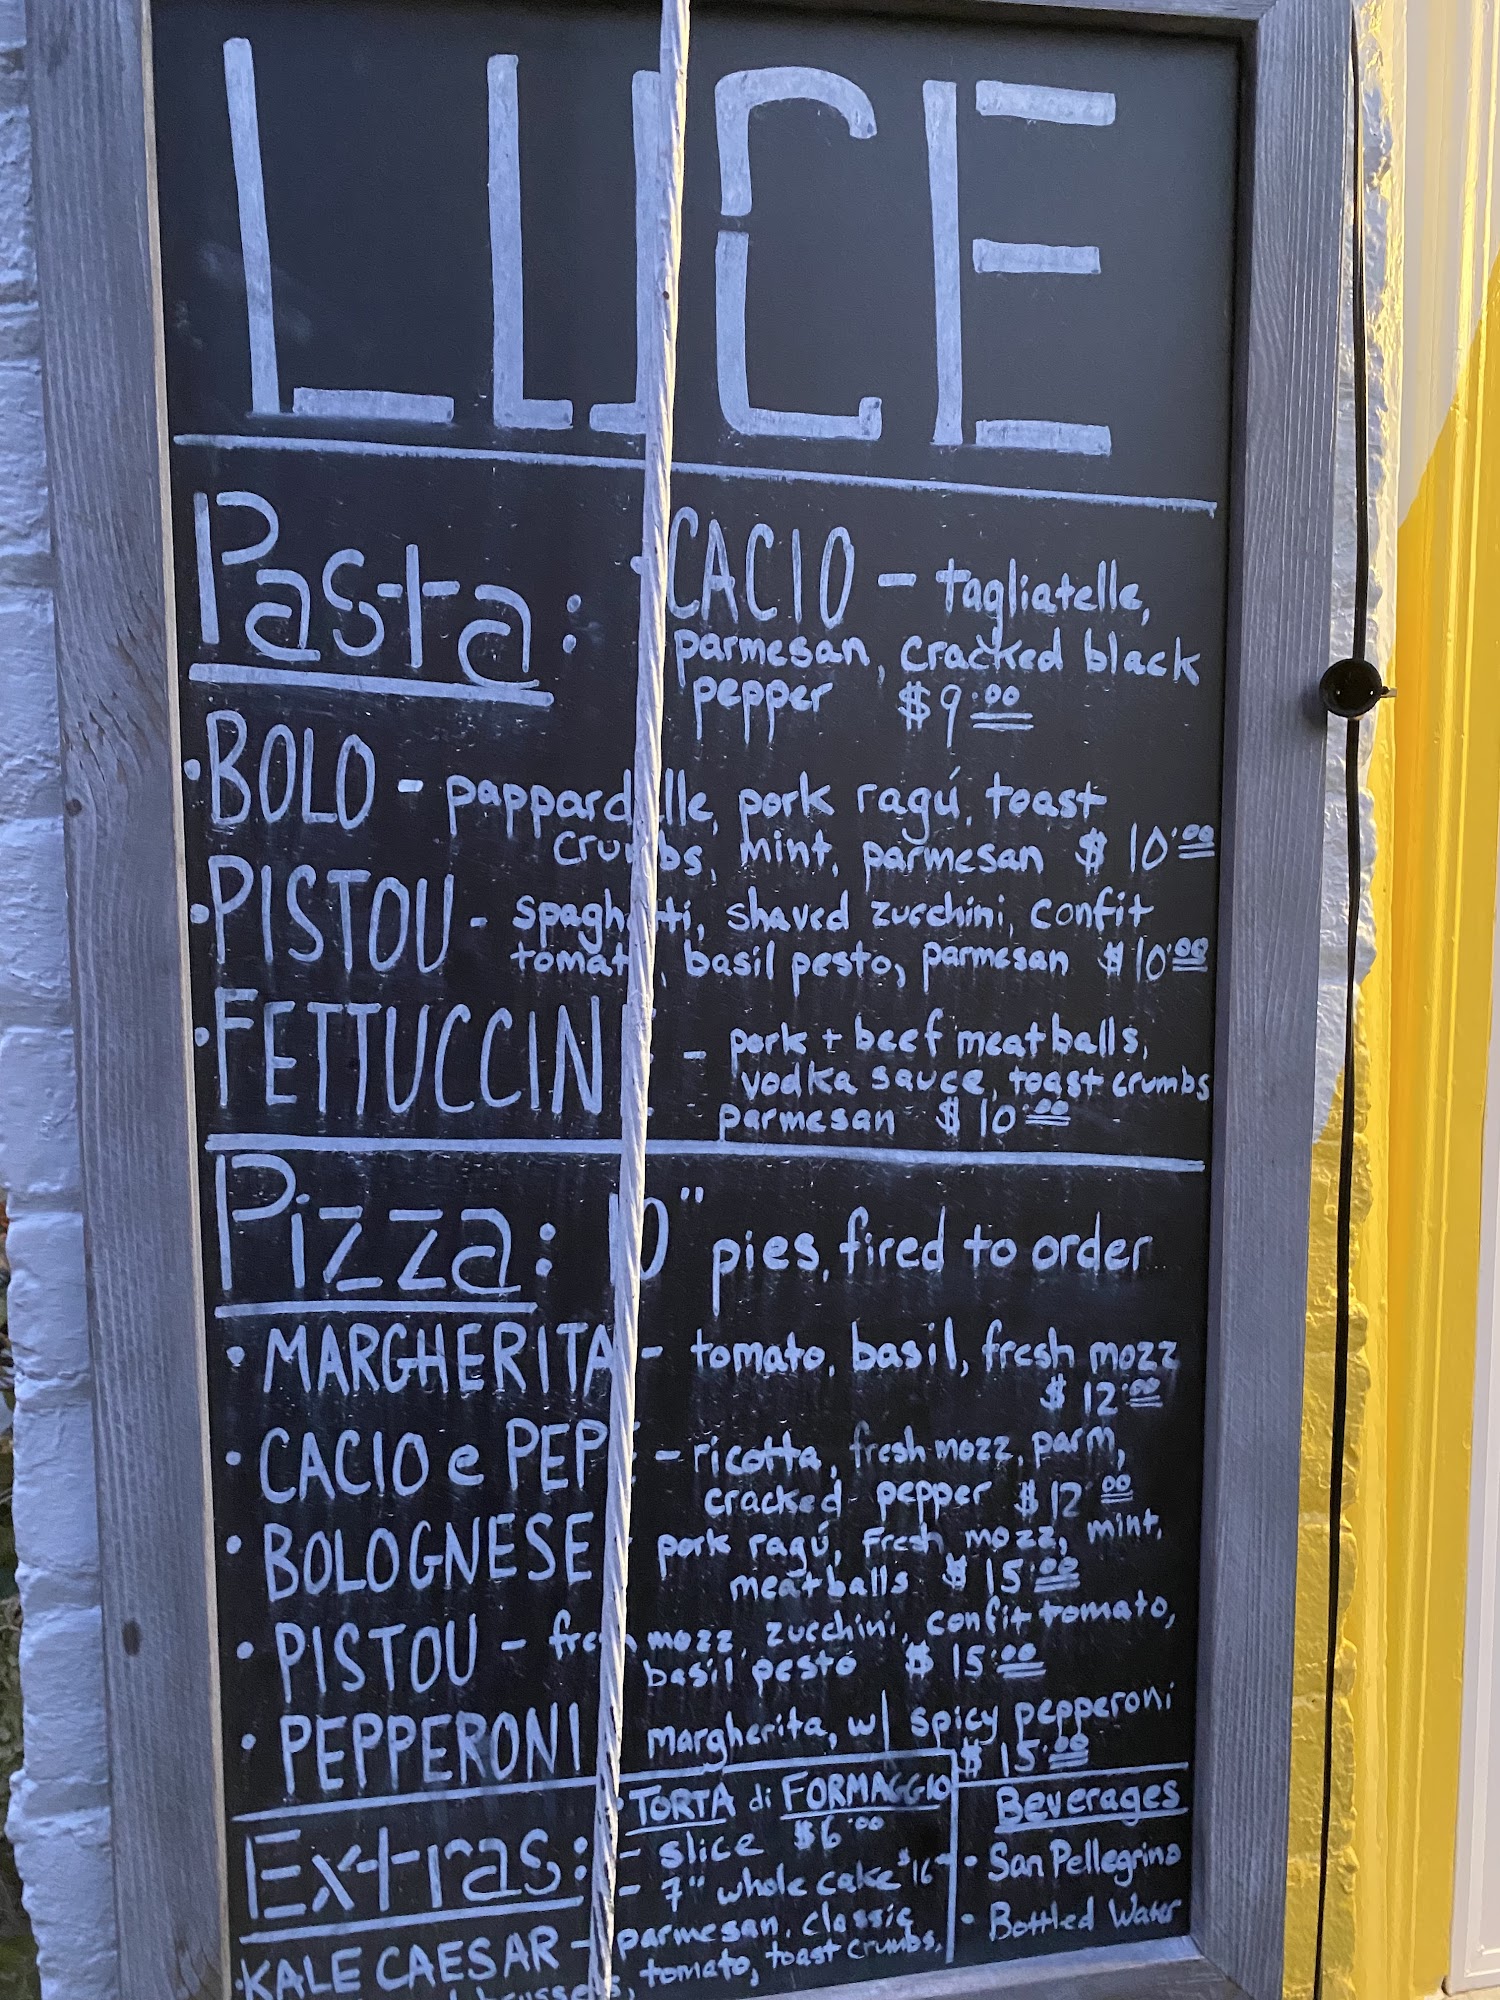 LUCE
Pasta:
CACIO - tagliatelle,
parmesan, cracked black
pepper $9.00
• BOLO - pappardelle, pork ragú, toast
crumbs, mint, parmesan $10.00
• PISTOU - spaghetti, shaved zucchini, confit
tomato, basil pesto, parmesan $10.00
• FETTUCCINE - pork + beef meatballs,
vodka sauce, toast crumbs
parmesan $10.00
Pizza: 10" pies, fired to order
• MARGHERITA - tomato, basil, fresh mozz
$12.00
• CACIO e PEPE - ricotta, fresh mozz, parm,
cracked pepper $12.00
• BOLOGNESE - pork ragú, fresh mozz, mint,
meatballs $15.00
• PISTOU - fresh mozz, zucchini, confit tomato,
basil pesto $15.00
• PEPPERONI margherita, w/ spicy pepperoni
$15.00
Extras:
• TORTA di FORMAGGIO
- slice $6.00
- 7" whole cake $16
• KALE CAESAR - parmesan, classic
tomato, toast crumbs,
Beverages
• San Pellegrino
• Bottled Water